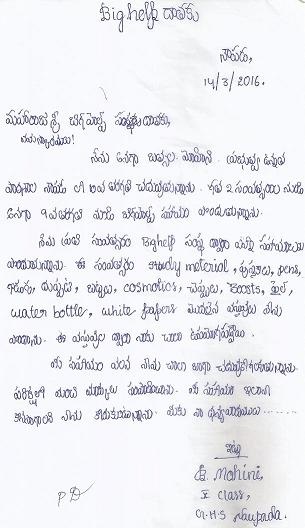 Bighelp దాతకు
నౌపడ,
14/3/2016.
మహారాజశ్రీ బిగ్ హెల్ప్ సంస్థకు దాతకు,
నమస్కారములు!
నేను అనగా బత్సల మోహిని. యభిభుత్వ ఉన్నత
పాఠశాల నందు 10వ తరగతి చదువుతున్నాను. గత 2 సంవత్సరాల నుండి
అనగా 9వ తరగతి నుండి బిగ్ హెల్ప్ సహాయం పొందుతున్నాను.
నేను ప్రతి సంవత్సరం Bighelp సంస్థ ద్వారా ఎన్నో సహాయాలు
పొందుతున్నాను. ఈ సంవత్సరం study material, పుస్తకాలు, pens,
దుప్పటి, బట్టలు, cosmotics, చెప్పులు, Boosts, ప్లేట్,
water bottle, white papers మొదలైన వస్తువులు నేను
పొందాను. ఈ వస్తువుల ద్వారా నాకు చాలా ఉపయోగపడ్డాయి.
మీ సహాయం వలన నేను చాలా బాగా చదువుకోగలుగుతున్నాను.
పరీక్షల్లో మంచి మార్కులు సంపాదించాను. మీ సహాయం ఇలానే
కొనసాగాలని నేను కోరుకుంటున్నాను. మీకు నా ధన్యవాదములు......
ఇట్లు
B. Mohini,
X class,
G.H.S Naupada.